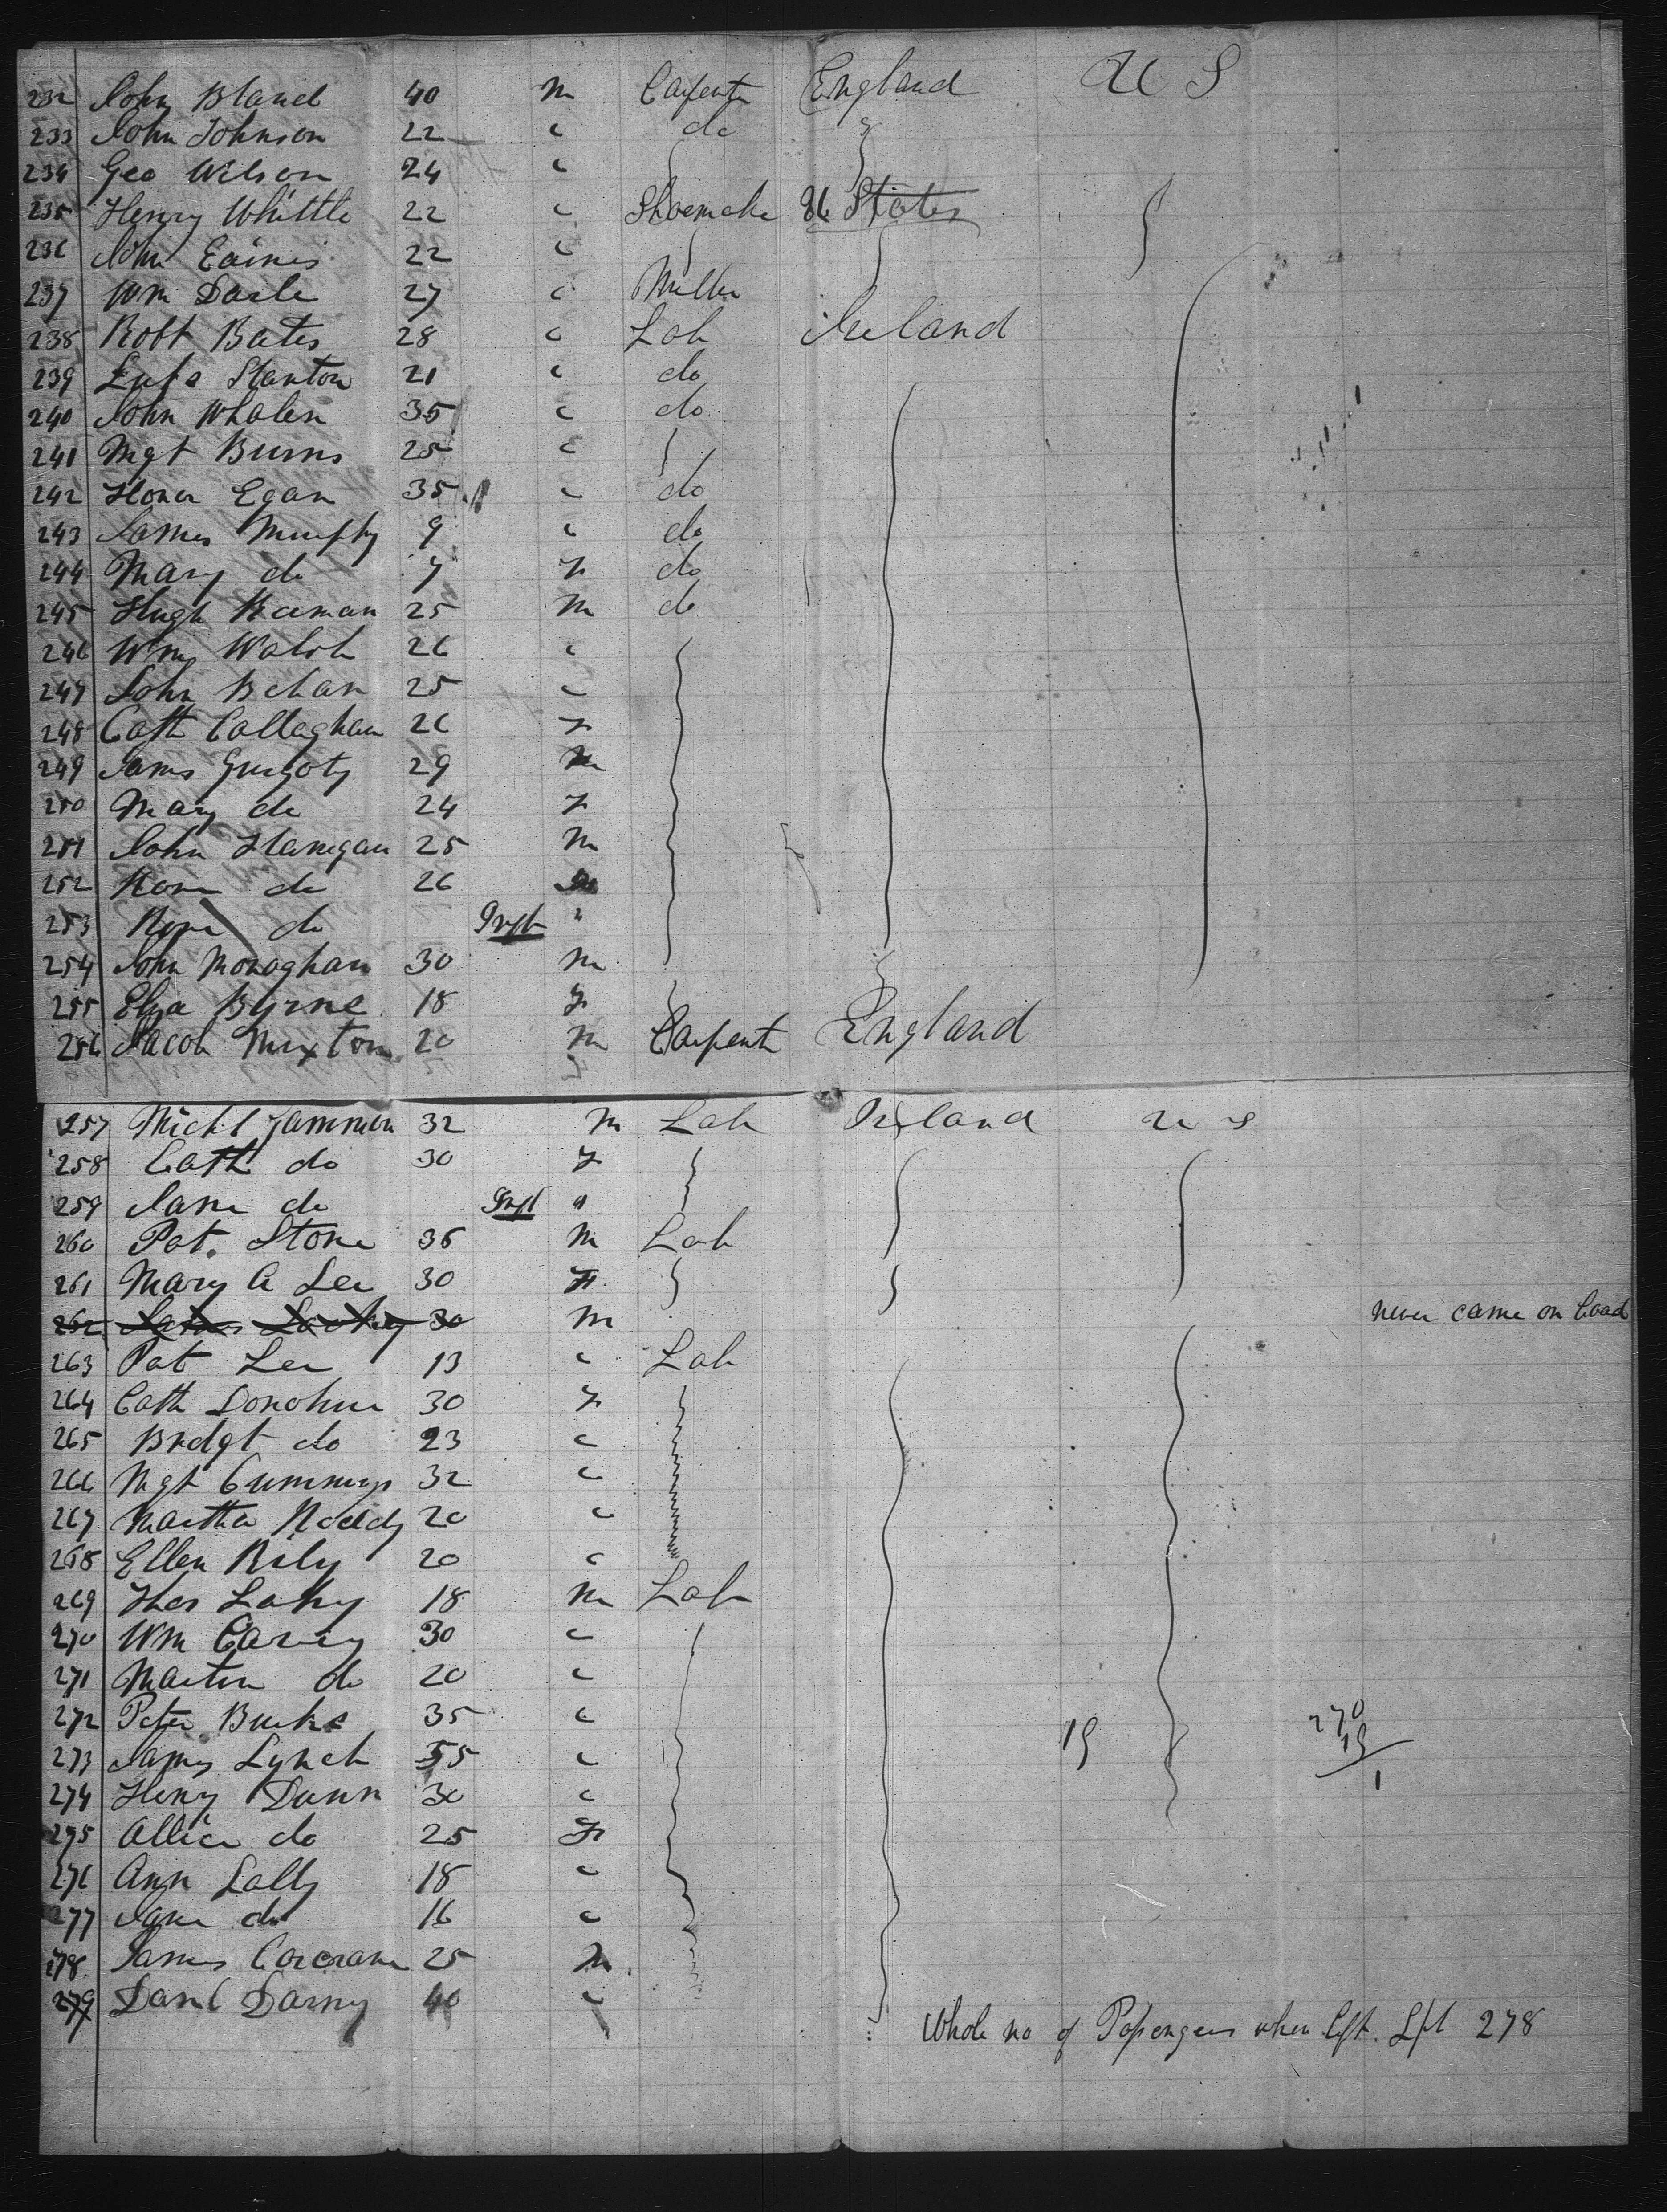 232 John Bland 40 m Carpentr England U S
233 John Johnson 22 " do
234 Geo Wilson 24 "
235 Henry Whittle 22 " Shoemake U States
236 John Eaines 22 "
237 Wm Dale 27 " Miller
238 Robt Bates 28 " Lab Ireland
239 Stanton 21 " do
240 John Whalen 35 " do
241 Mgt Burns 25 "
242 Honor Egan 35 " do
243 James Murphy 9 " do
244 Mary do 7 F do
245 Hugh 25 m do
246 Wm Walsh 26 "
247 John Behan 25 "
248 Cath Callaghan 26 F
249 James 29 m
250 Mary do 24 F
251 John Flanigan 25 m
252 Rose do 26
253 Rose do Inft "
254 John Monaghan 30 m
255 Eliza Byrne 18 F
256 Jacob Muxton 20 m Carpentr England
257 Michl Gammon 32 m Lab Ireland U S
258 Cath do 30 F
259 Jane do Inft "
260 Pat. Stone 36 m Lab
261 Mary A Lee 30 F
262 30 m never came on board
263 Pat Lee 13 " Lab
264 Cath Donohue 30 F
265 Brdgt do 23 "
266 Mgt Cummings 32 "
267 Martha Noddy 20 "
268 Ellen Rily 20 "
269 Thos Lahy 18 m Lab
270 Wm Carney 30 "
271 Martin do 20 "
272 Peter Burke 35 " 19 270
273 James Lynch 55 " 19
274 Henry Dunn 30 " 1
275 Allice do 25 F
276 Ann Lally 18 "
277 Jane do 16 "
278 James Corcoran 25 m
279 Danl Darny 40 "
Whole no of Passengers when left. L/pl 278